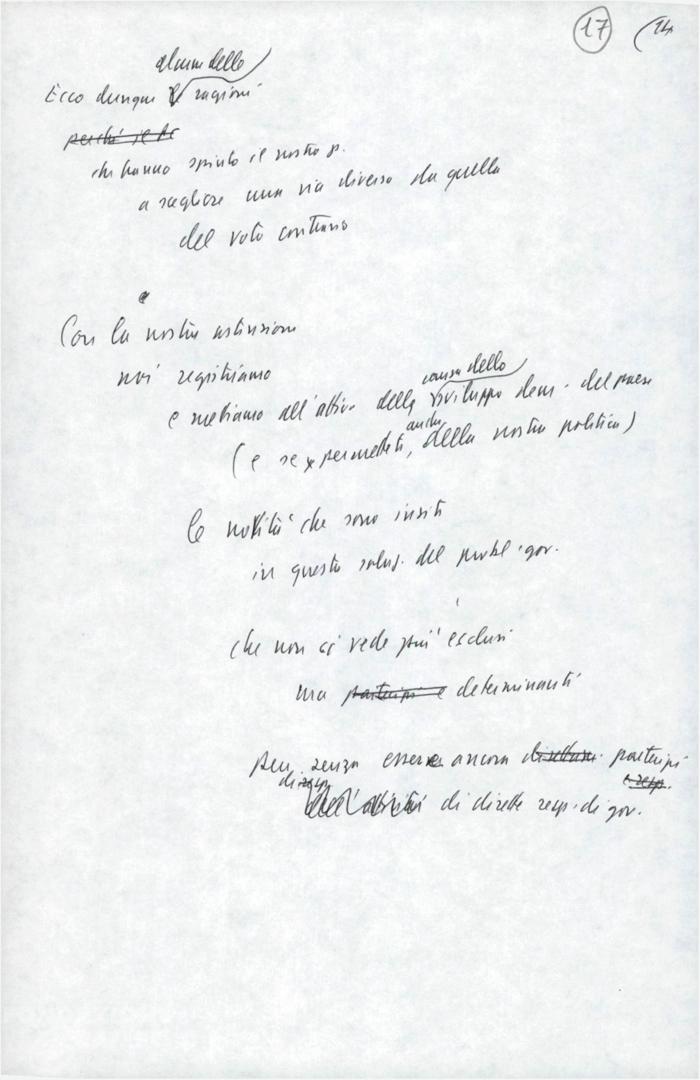 17 14
alcune delle
Ecco dunque le ragioni
perché il
che hanno spinto il nostro p.
a scegliere una via diversa da quella
del voto contrario
e
Con la nostra astensione
noi registriamo
causa dello
e mettiamo all'attivo della sviluppo dem. del paese
anche
(e se permettete, della nostra politica)
le novità che sono insiti
in questa soluz. del probl. gov.
che non ci vede più esclusi
ma partecipi e determinanti
pur senza essere ancora partecipi
e resp.
di resp.
di dirette resp. di gov.